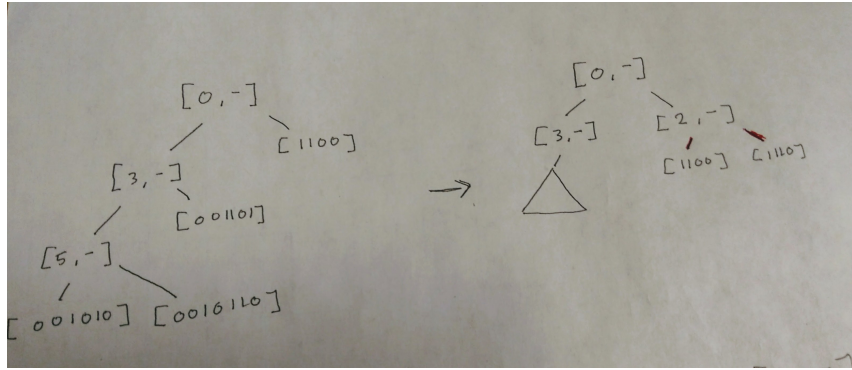 [0,-]
[1100]
[3,-]
[001101]
[5,-]
[001010]
[0010110]
→
[0,-]
[3,-]
[2,-]
[1100]
[1110]